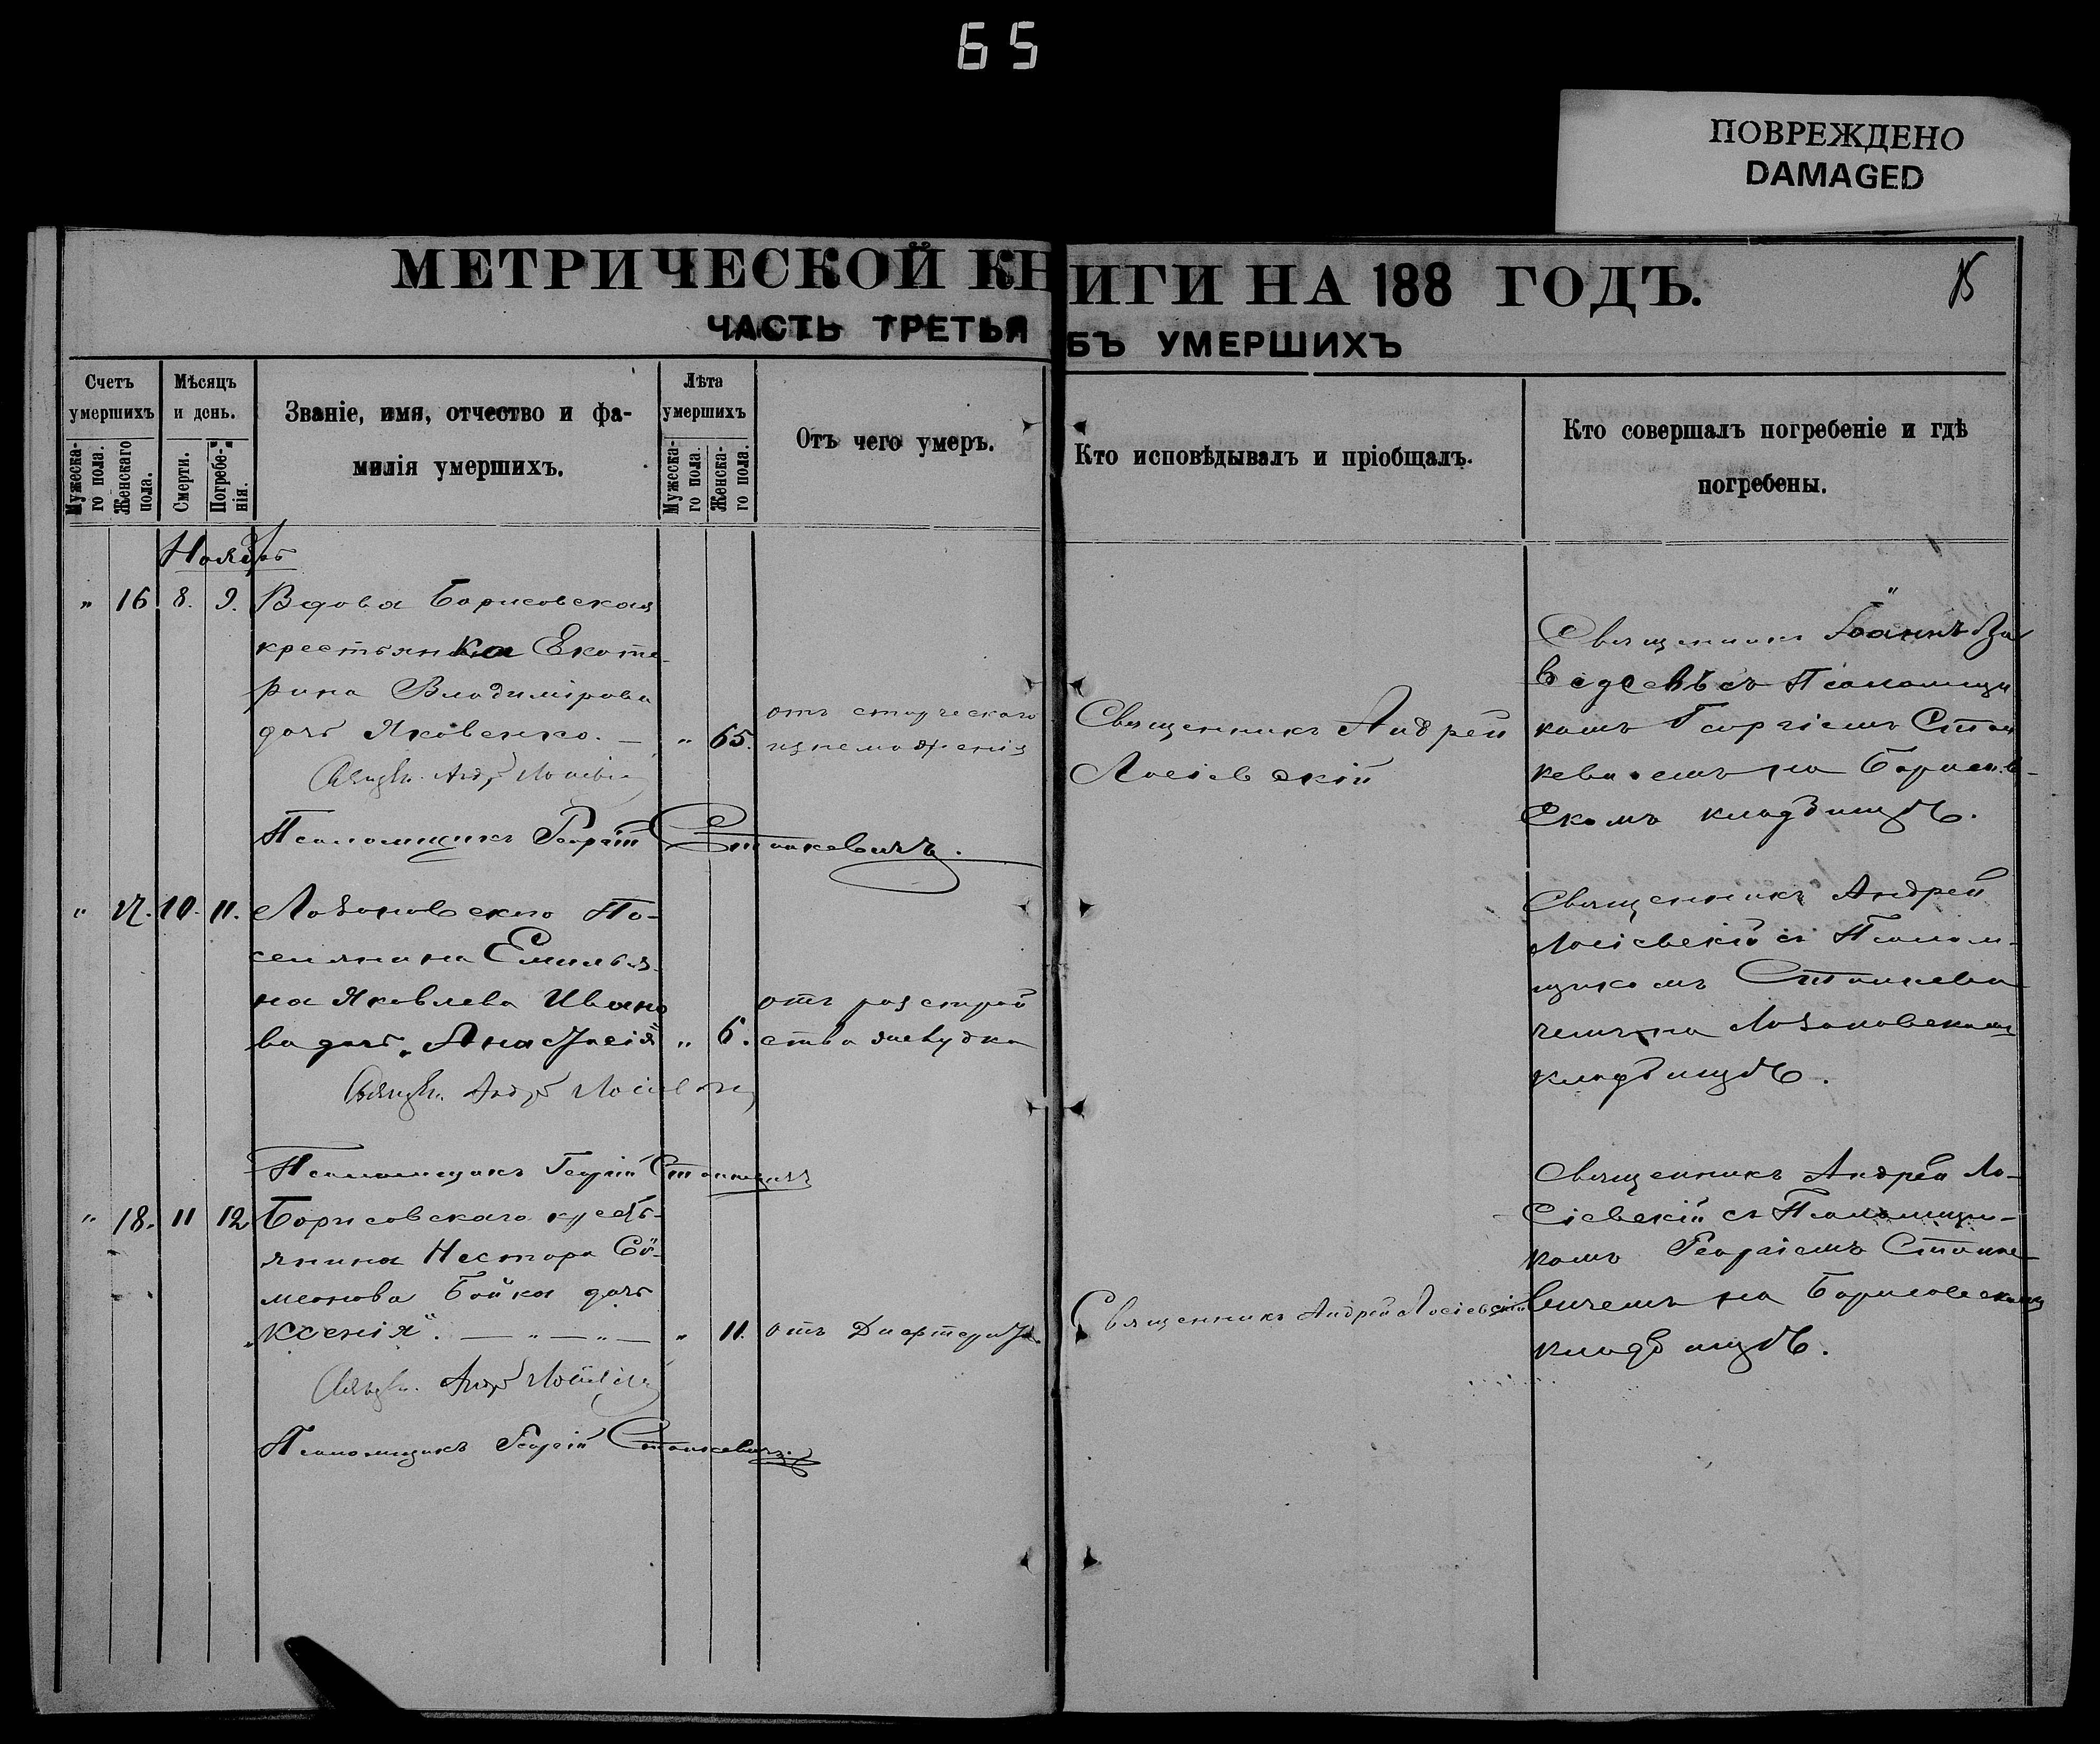 65
ПОВРЕЖДЕНО
DAMAGED
МЕТРИЧЕСКОЙ КНИГИ НА 188 ГОДЪ.
15
ЧАСТЬ ТРЕТЬЯ БЪ УМЕРШИХЪ
Счетъ умершихъ
Мужеска-го пола.
Женскаго пола.
Мѣсяцъ и день.
Смерти.
Погребе-нія.
Званіе, имя, отчество и фа-
милія умершихъ.
Лѣта умершихъ
Мужеска-го пола.
Женска-го пола.
Отъ чего умеръ.
Кто исповѣдывалъ и пріобщалъ.
Кто совершалъ погребеніе и гдѣ
погребены.
Ноябрь
" 16 8. 9. Вдова Борисовская
крестьянка Екате-
рина Владимірова
дочь Яковенко. — " 65.
Андр
Псаломщикъ Георгій Станкевичъ.
отъ старческаго
изнеможенія
Священникъ Андрей
Лосіевскій
Священникъ Іоаннъ
съ Псаломщи
комъ Георгіемъ Стан
кевичемъ на Борисов-
скомъ кладбищѣ.
" 17. 10. 11. Лобановскаго По-
селянина Емилья-
на Яковлева Ивано
ва дочь „Анастасія" " 6.
Андр
Псаломщикъ Георгій Станкевичъ
отъ разстрой
ства желудка
Священникъ Андрей
Лосіевскій съ Псалом-
щикомъ Станкеви
чемъ на Лобановскомъ
кладбищѣ.
" 18. 11 12 Борисовскаго кресть-
янина Нестора Си-
меонова Бойка дочь
„Ксенія". — " — " — " 11. отъ Дифтерита
Андр
Псаломщикъ Георгій Станкевичъ.
Священникъ Андрей Лосіевскій
Священникъ Андрей Ло-
сіевскій съ Псаломщи-
комъ Георгіемъ Станке
вичемъ на Борисовскомъ
кладбищѣ.